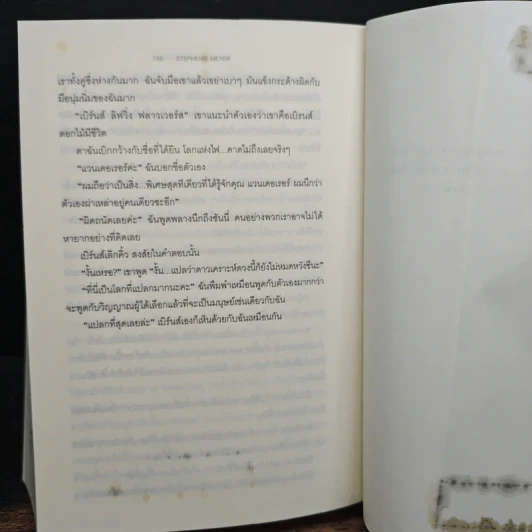 786 STEPHENIE MEYER
เราทั้งคู่ซึ่งห่างกันมาก ฉันจับมือเขาแล้วเขย่าเบาๆ มันแข็งกระด้างผิดกับ
มือนุ่มนิ่มของฉันมาก
“เบิร์นส์ ลิฟวิ่ง ฟลาวเวอร์ส” เขาแนะนำตัวเองว่าเขาคือเบิร์นส์
ดอกไม้มีชีวิต
ตาฉันเบิกกว้างกับชื่อที่ได้ยิน โลกแห่งไฟ...คาดไม่ถึงเลยจริงๆ
“แวนเดอเรอร์ค่ะ” ฉันบอกชื่อตัวเอง
“ผมถือว่าเป็นสิ่ง...พิเศษสุดทีเดียวที่ได้รู้จักคุณ แวนเดอเรอร์ ผมนึกว่า
ตัวเองผ่าเหล่าอยู่คนเดียวซะอีก”
“ผิดถนัดเลยค่ะ” ฉันพูดพลางนึกถึงซันนี่ คนอย่างพวกเราอาจไม่ได้
หายากอย่างที่คิดเลย
เบิร์นส์เลิกคิ้ว สงสัยในคำตอบนั้น
“งั้นเหรอ?” เขาพูด “งั้น...แปลว่าดาวเคราะห์ดวงนี้ก็ยังไม่หมดหวังซีนะ”
“ที่นี่เป็นโลกที่แปลกมากนะคะ” ฉันพึมพำเหมือนพูดกับตัวเองมากกว่า
จะพูดกับวิญญาณผู้ได้เลือกแล้วที่จะเป็นมนุษย์เช่นเดียวกับฉัน
“แปลกที่สุดเลยล่ะ” เบิร์นส์เองก็เห็นด้วยกับฉันเหมือนกัน